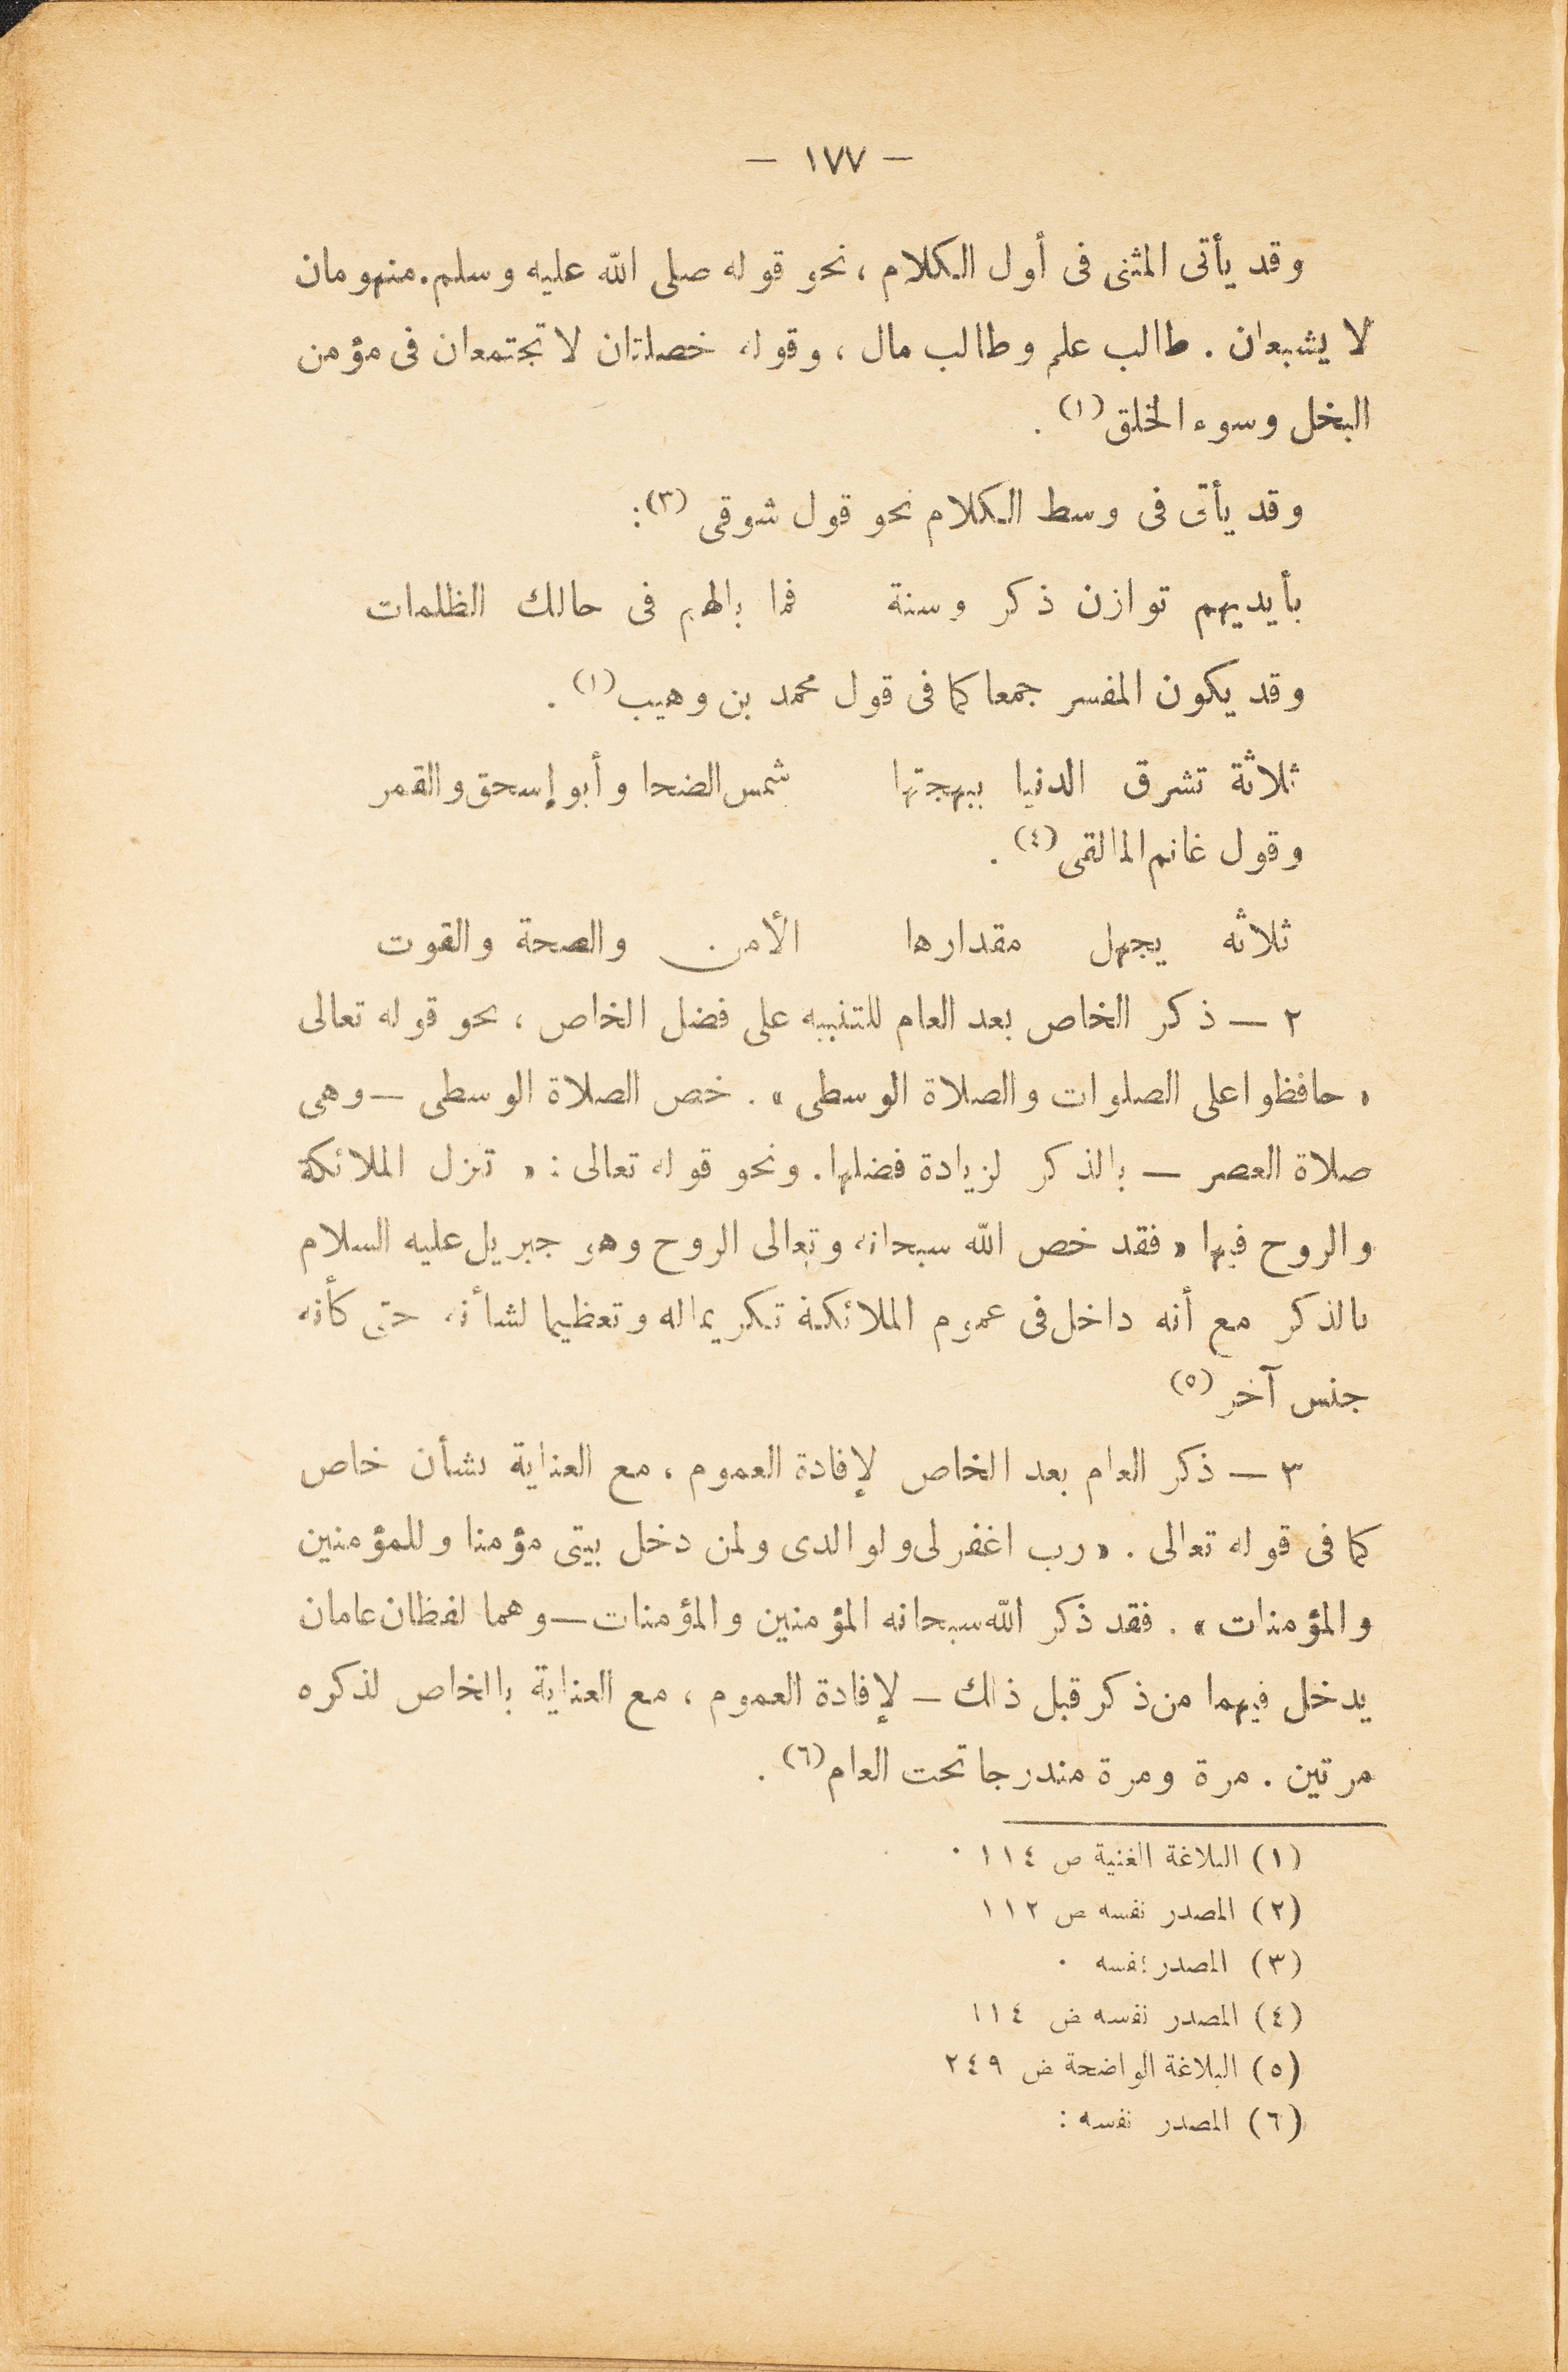 — ١٧٧ —
وقد يأتى المثنى فى أول الكلام ، نحو قوله صلى الله عليه وسلم . منهومان
لا يشبعان . طالب علم وطالب مال ، وقوله خصلتان لا تجتمعان فى مؤمن
البخل وسوء الخلق (١) .
وقد يأتى فى وسط الكلام نحو قول شوقى (٢) :
بأيديهم توازن ذكر وسنة فما بالهم فى حالك الظلمات
وقد يكون المفسر جمعا كما فى قول محمد بن وهيب (١) .
ثلاثة تشرق الدنيا ببهجتها شمس الضحا وأبو إسحق والقمر
وقول غانم المالقى (٤) .
ثلاثه يجهل مقدارها الأمن والصحة والقوت
٢ — ذكر الخاص بعد العام للتنبيه على فضل الخاص ، نحو قوله تعالى
« حافظوا على الصلوات والصلاة الوسطى » . خص الصلاة الوسطى — وهى
صلاة العصر — بالذكر لزيادة فضلها . ونحو قوله تعالى : « تنزل الملائكة
والروح فيها » فقد خص الله سبحانه وتعالى الروح وهو جبريل عليه السلام
بالذكر مع أنه داخل فى عموم الملائكة تكريما له وتعظيما لشأنه حتى كأنه
جنس آخر (٥)
٣ — ذكر العام بعد الخاص لإفادة العموم ، مع العناية بشأن خاص
كما فى قوله تعالى . « رب اغفر لى ولوالدى ولمن دخل بيتى مؤمنا وللمؤمنين
والمؤمنات » . فقد ذكر الله سبحانه المؤمنين والمؤمنات — وهما لفظان عامان
يدخل فيهما من ذكر قبل ذلك — لإفادة العموم ، مع العناية بالخاص لذكره
مرتين . مرة ومرة مندرجا تحت العام (٦) .
(١) البلاغة الغنية ص ١١٤ .
(٢) المصدر نفسه ص ١١٢
(٣) المصدر نفسه .
(٤) المصدر نفسه ض ١١٤
(٥) البلاغة الواضحة ض ٢٤٩
(٦) المصدر نفسه :